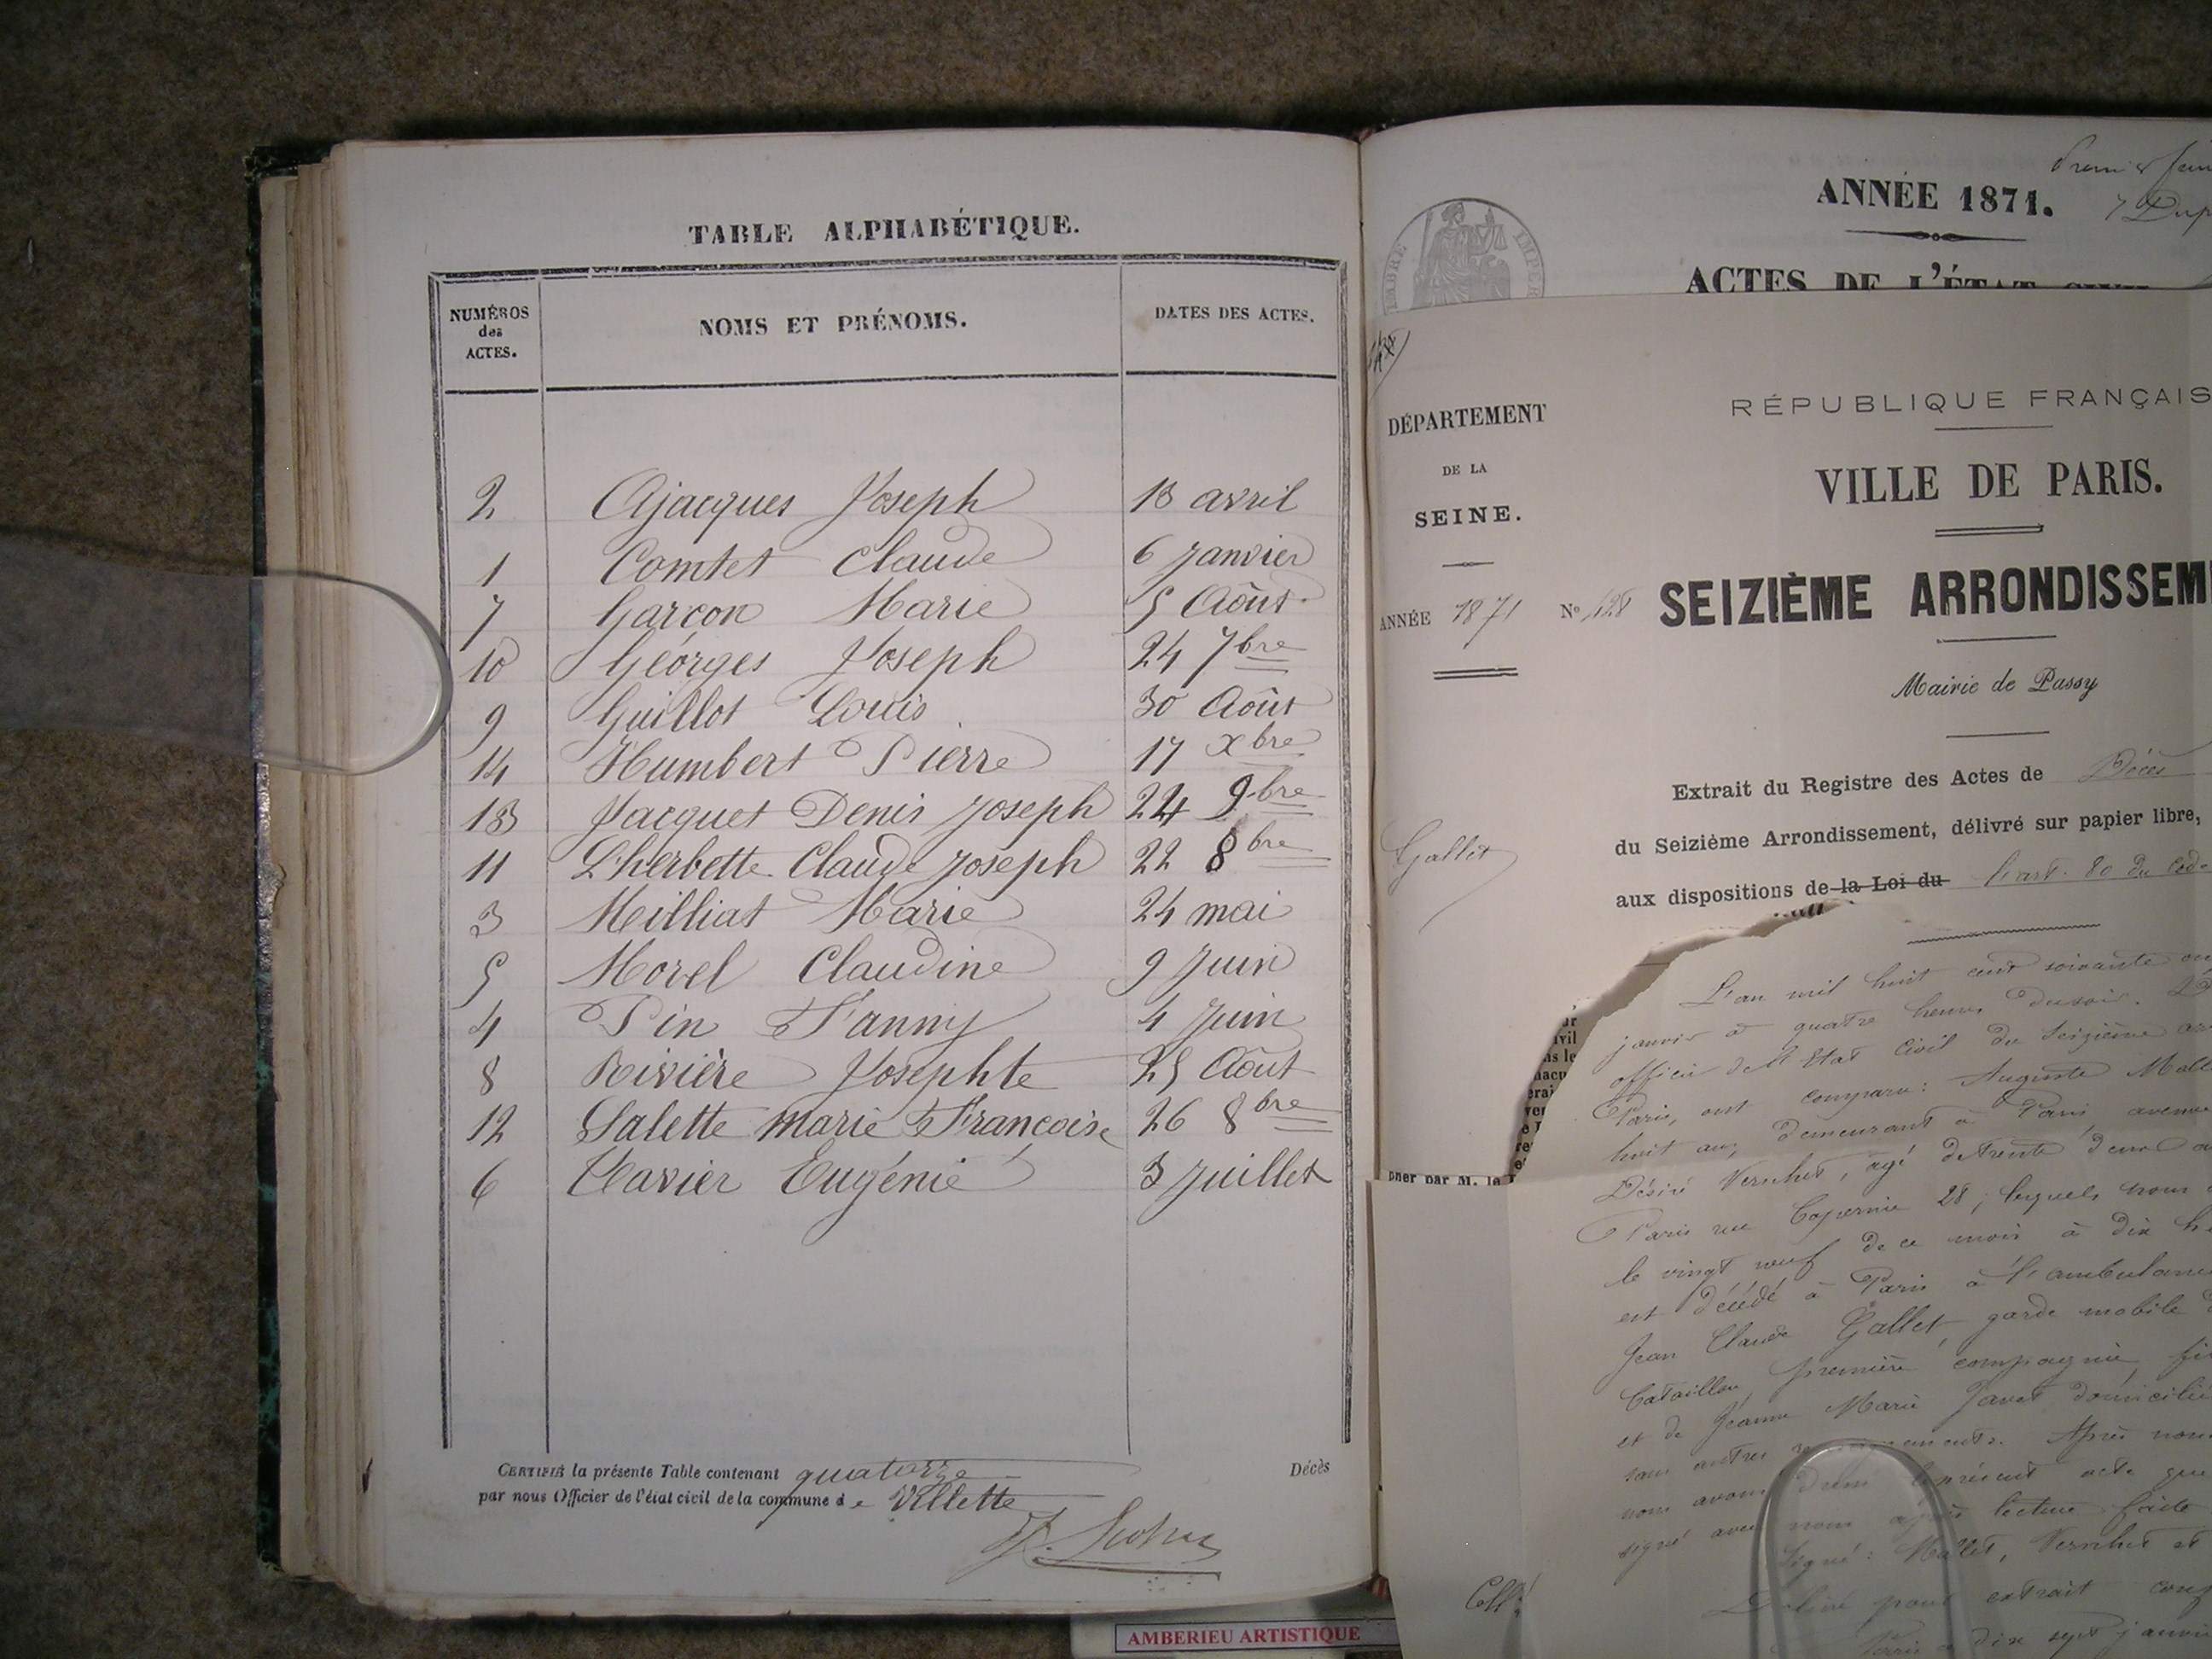 TABLE ALPHABÉTIQUE.
NUMÉROS des ACTES. NOMS ET PRÉNOMS. DATES DES ACTES.
2 Ajacques Joseph 13 avril
1 Comtet Claude 6 Janvier
7 Garcon Marie 5 Aôut
10 Géorges Joseph 24 7bre
9 Guillot Louis 30 Aôut
14 Humbert Pierre 17 xbre
13 Jacquet Denis Joseph 24 9bre
11 Lherbette Claude Joseph 22 8bre
3 Milliat Marie 24 mai
5 Morel Claudine 9 Juin
4 Pin Fanny 4 Juin
8 Rivière Josephte 25 Aôut
12 Salette Marie Francoise 26 8bre
6 Vavier Eugénie 3 Juillet
CERTIFIÉ la présente Table contenant quatorze Décès
par nous Officier de l'état civil de la commune de Villette
AMBERIEU ARTISTIQUE
ANNÉE 1871.
TIMBRE IMPER
ACTES DE L'ÉTAT CIVIL
DÉPARTEMENT
DE LA
SEINE.
ANNÉE 1871
Gallet
RÉPUBLIQUE FRANÇAIS
VILLE DE PARIS.
Nº 128 SEIZIÈME ARRONDISSEM
Mairie de Passy
Extrait du Registre des Actes de Décès
du Seizième Arrondissement, délivré sur papier libre,
aux dispositions de la Loi du l'art. 80 du Code
L'an mil huit cent soixante on
janvier à quatre heures du soir.
officier de l'Etat Civil du Seizième ar
Paris, ont comparu: Auguste Mall
huit ans, demeurant à Paris, avenue
Désiré Vernhet, agé de trente deux a
Paris rue Copernic 28, lesquels nous
le vingt neuf de ce mois à dix h
est décédé à Paris à l'ambulance
Jean Claude Gallet, garde mobile
bataillon, première compagnie, fi
et de Jeanne Marie Javet domicilié
sans autres renseignements. Après nou
nous avons le présent acte qu
signé avec nous après lecture faite
Signé: Mallet, Vernhet et
Délivré pour extrait
Paris dix sept janvie
Coll